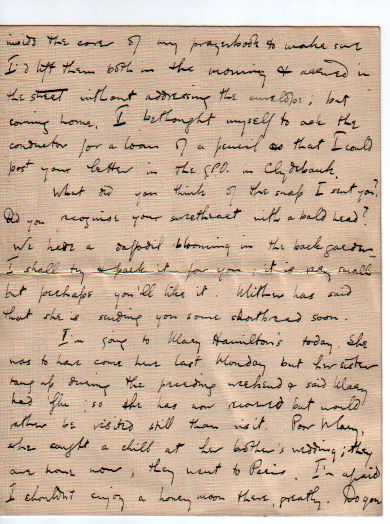 inside the cover of my prayerbook to make sure
I'd lift them both in the morning & arrived in
the street without addressing the envelope; but
coming home, I bethought myself to ask the
conductor for a loan of a pencil so that I could
post your letter in the GPO. in Clydebank.
What did you think of the snap I sent you?
Did you recognise your sweetheart with a bald head?
We have a daffodil blooming in the back garden
I shall try & pack it for you; it is very small
but perhaps you'll like it. Mither has said
that she is sending you some shortbread soon.
I'm going to Mary Hamilton's today. She
was to have come here last Monday but her sister
rang up during the preceding weekend & said Mary
had flu; so she has now recovered but would
rather be visited still than visit. Poor Mary,
she caught a chill at her brother's wedding; they
are home now; they went to Paris. I'm afraid
I shouldn't enjoy a honeymoon there, greatly. Do you